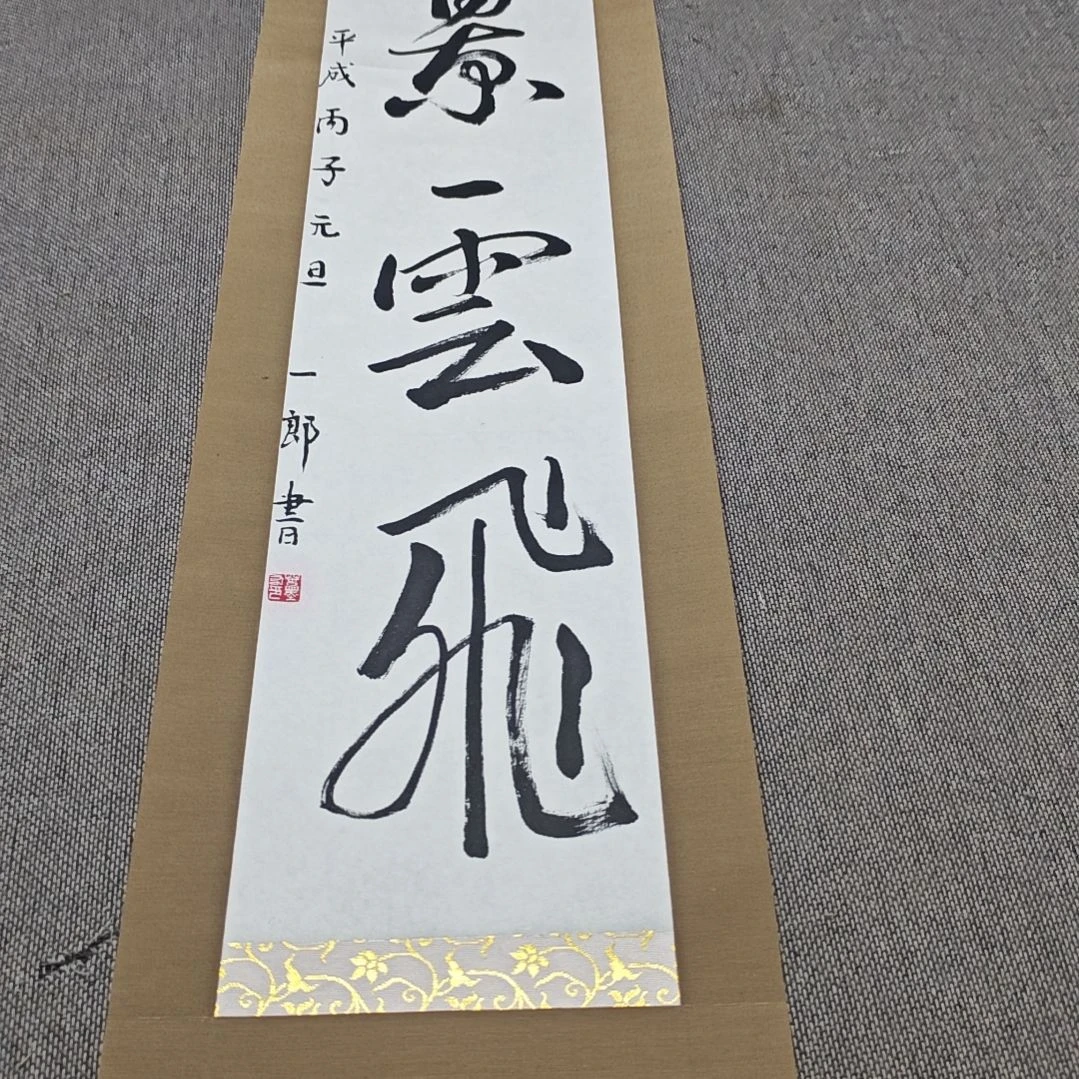 景雲飛
平成丙子元旦 一郎書